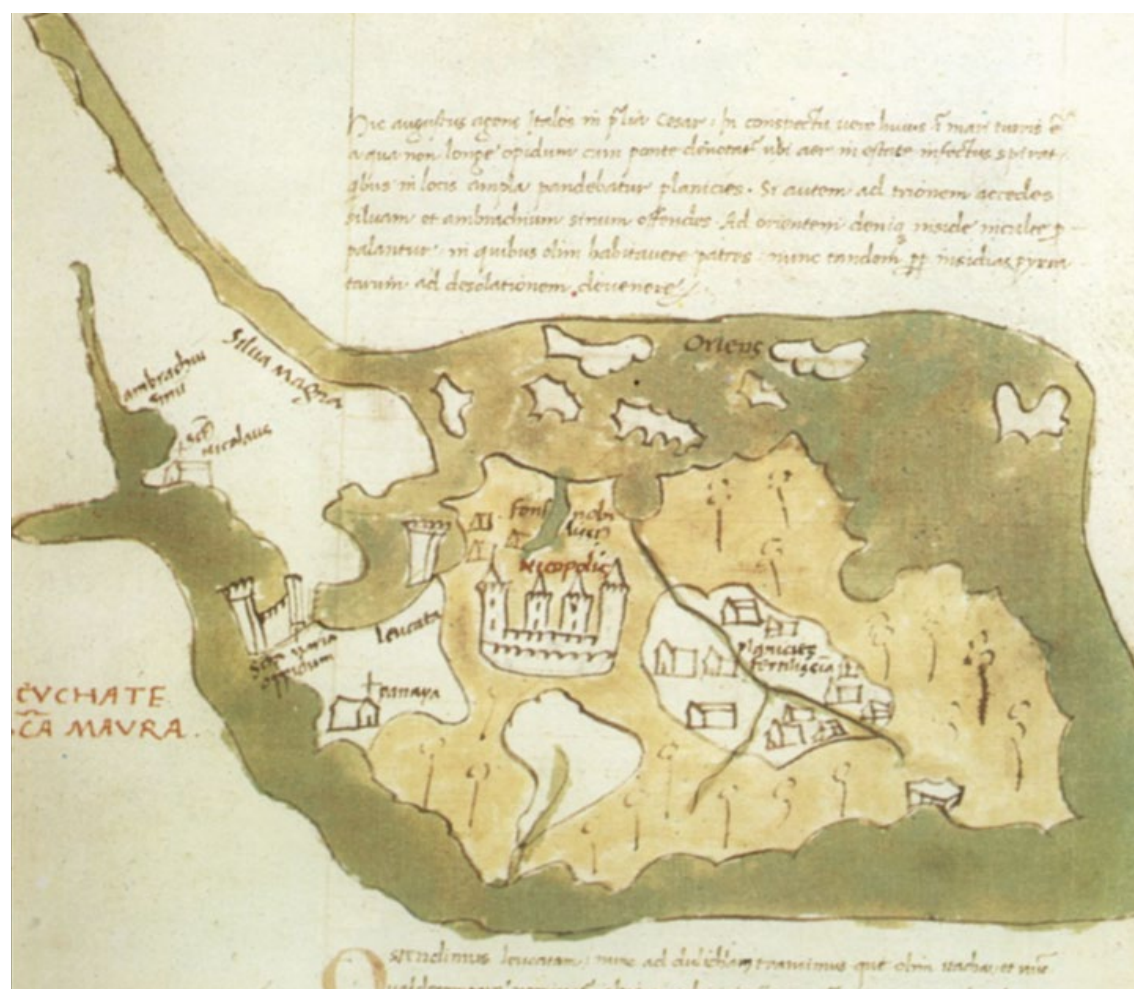 hic augustus agens Italos in plia Cesar. In conspectu vero huius i mari turris ē
a qua non longe opidum cum ponte denotat ubi aer in estate infectus spirat.
qbus in locis ampla pandebatur planicies. Si autem ad trionem accedes
siluam et ambrachium sinum offendes. Ad orientem deniq insule inculte p
palantur. in quibus olim habitavere patres. nunc tandem pp insidias pyrra
tarum ad desolationem devenere
Oriens
Silva Magna
ambrachiu
sinu
scs
nicolaus
fons nobi
liss
nicopolis
leucata
scta maria
oppidum
planicies
fertilissia
panaya
CVCHATE
CA MAVRA.
Ostendimus leucatam. nunc ad dulichiam tranimus que olim itacha. et